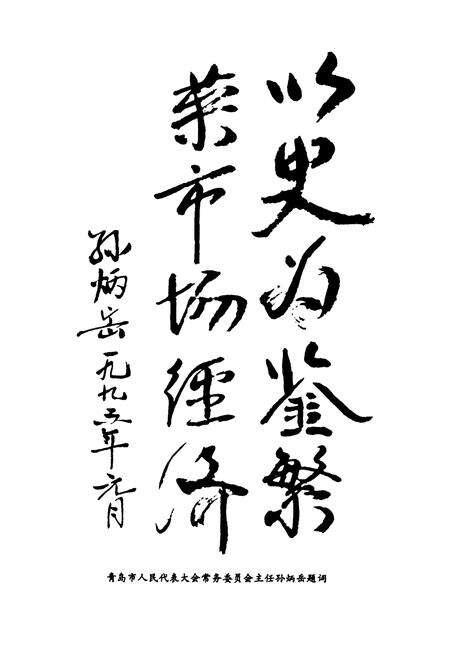 以史为鉴繁
荣市场經济
孙炳岳一九九年月
青岛市人民代表大会常务委员会主任孙炳岳题词